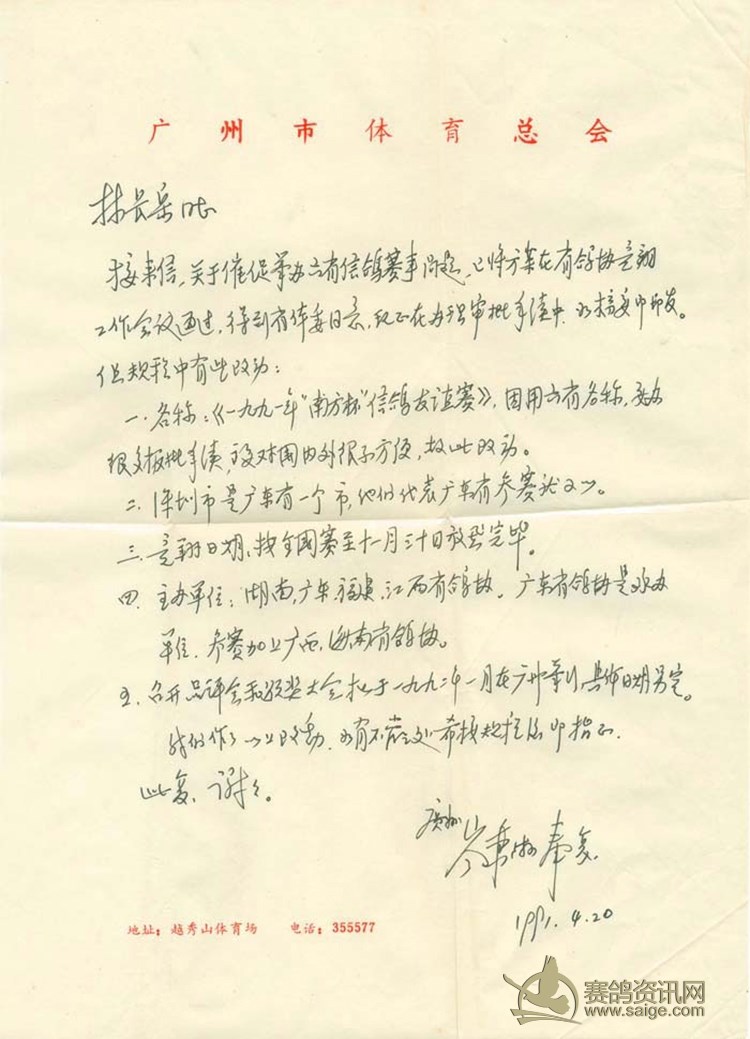 广州市体育总会
林长岳同志
接来信,关于催促举办六省信鸽赛事问题,已将方案在省鸽协竞翔
工作会议通过,得到省体委同意,现正在办理审批手续中,水接复即印发。
但规程中有些改动:
一.名称:《一九九一年“南方杯”信鸽友谊赛》,因用六省名称,要办
很多报批手续,对国内外很不方便,故此改动。
二.深圳市是广东省一个市,他们代表广东省参赛
三.竞翔日期,按全国赛至十一月三十日放飞完毕。
四.主办单位:湖南,广东,福建,江西省鸽协。广东省鸽协是承办
单位.参赛加上广西,海南省鸽协。
五.召开品评会和颁奖大会拟于一九九二年一月在广州举行,具体日期另定。
我们作了以上改动,如有不当之处希接规程后即指正.
此复.谢谢.
广州
岑 奉复
1991.4.20
地址:越秀山体育场 电话:355577
赛鸽资讯网
www.saige.com